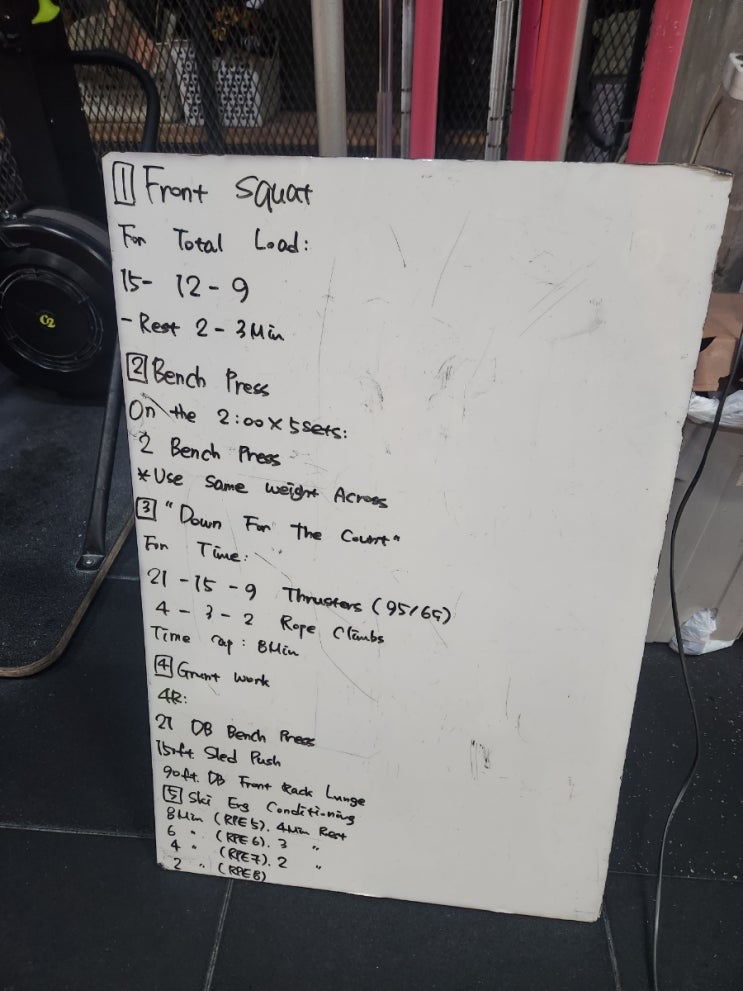 1 Front Squat
For Total Load:
15- 12 - 9
- Rest 2 - 3 Min
2 Bench Press
On the 2:00 X 5sets:
2 Bench Press
*Use Same weight Across
3 "Down For The Count"
For Time:
21 - 15 - 9 Thrusters (95/65)
4 - 3 - 2 Rope Climbs
Time Cap: 8Min
4 Grunt work
4R:
21 DB Bench Press
150ft. Sled Push
90ft. DB Front Rack Lunge
5 Ski Erg Conditioning
8Min (RPE5). 4Min Rest
6 " (RPE6). 3 "
4 " (RPE7). 2 "
2 " (RPE8)
C2